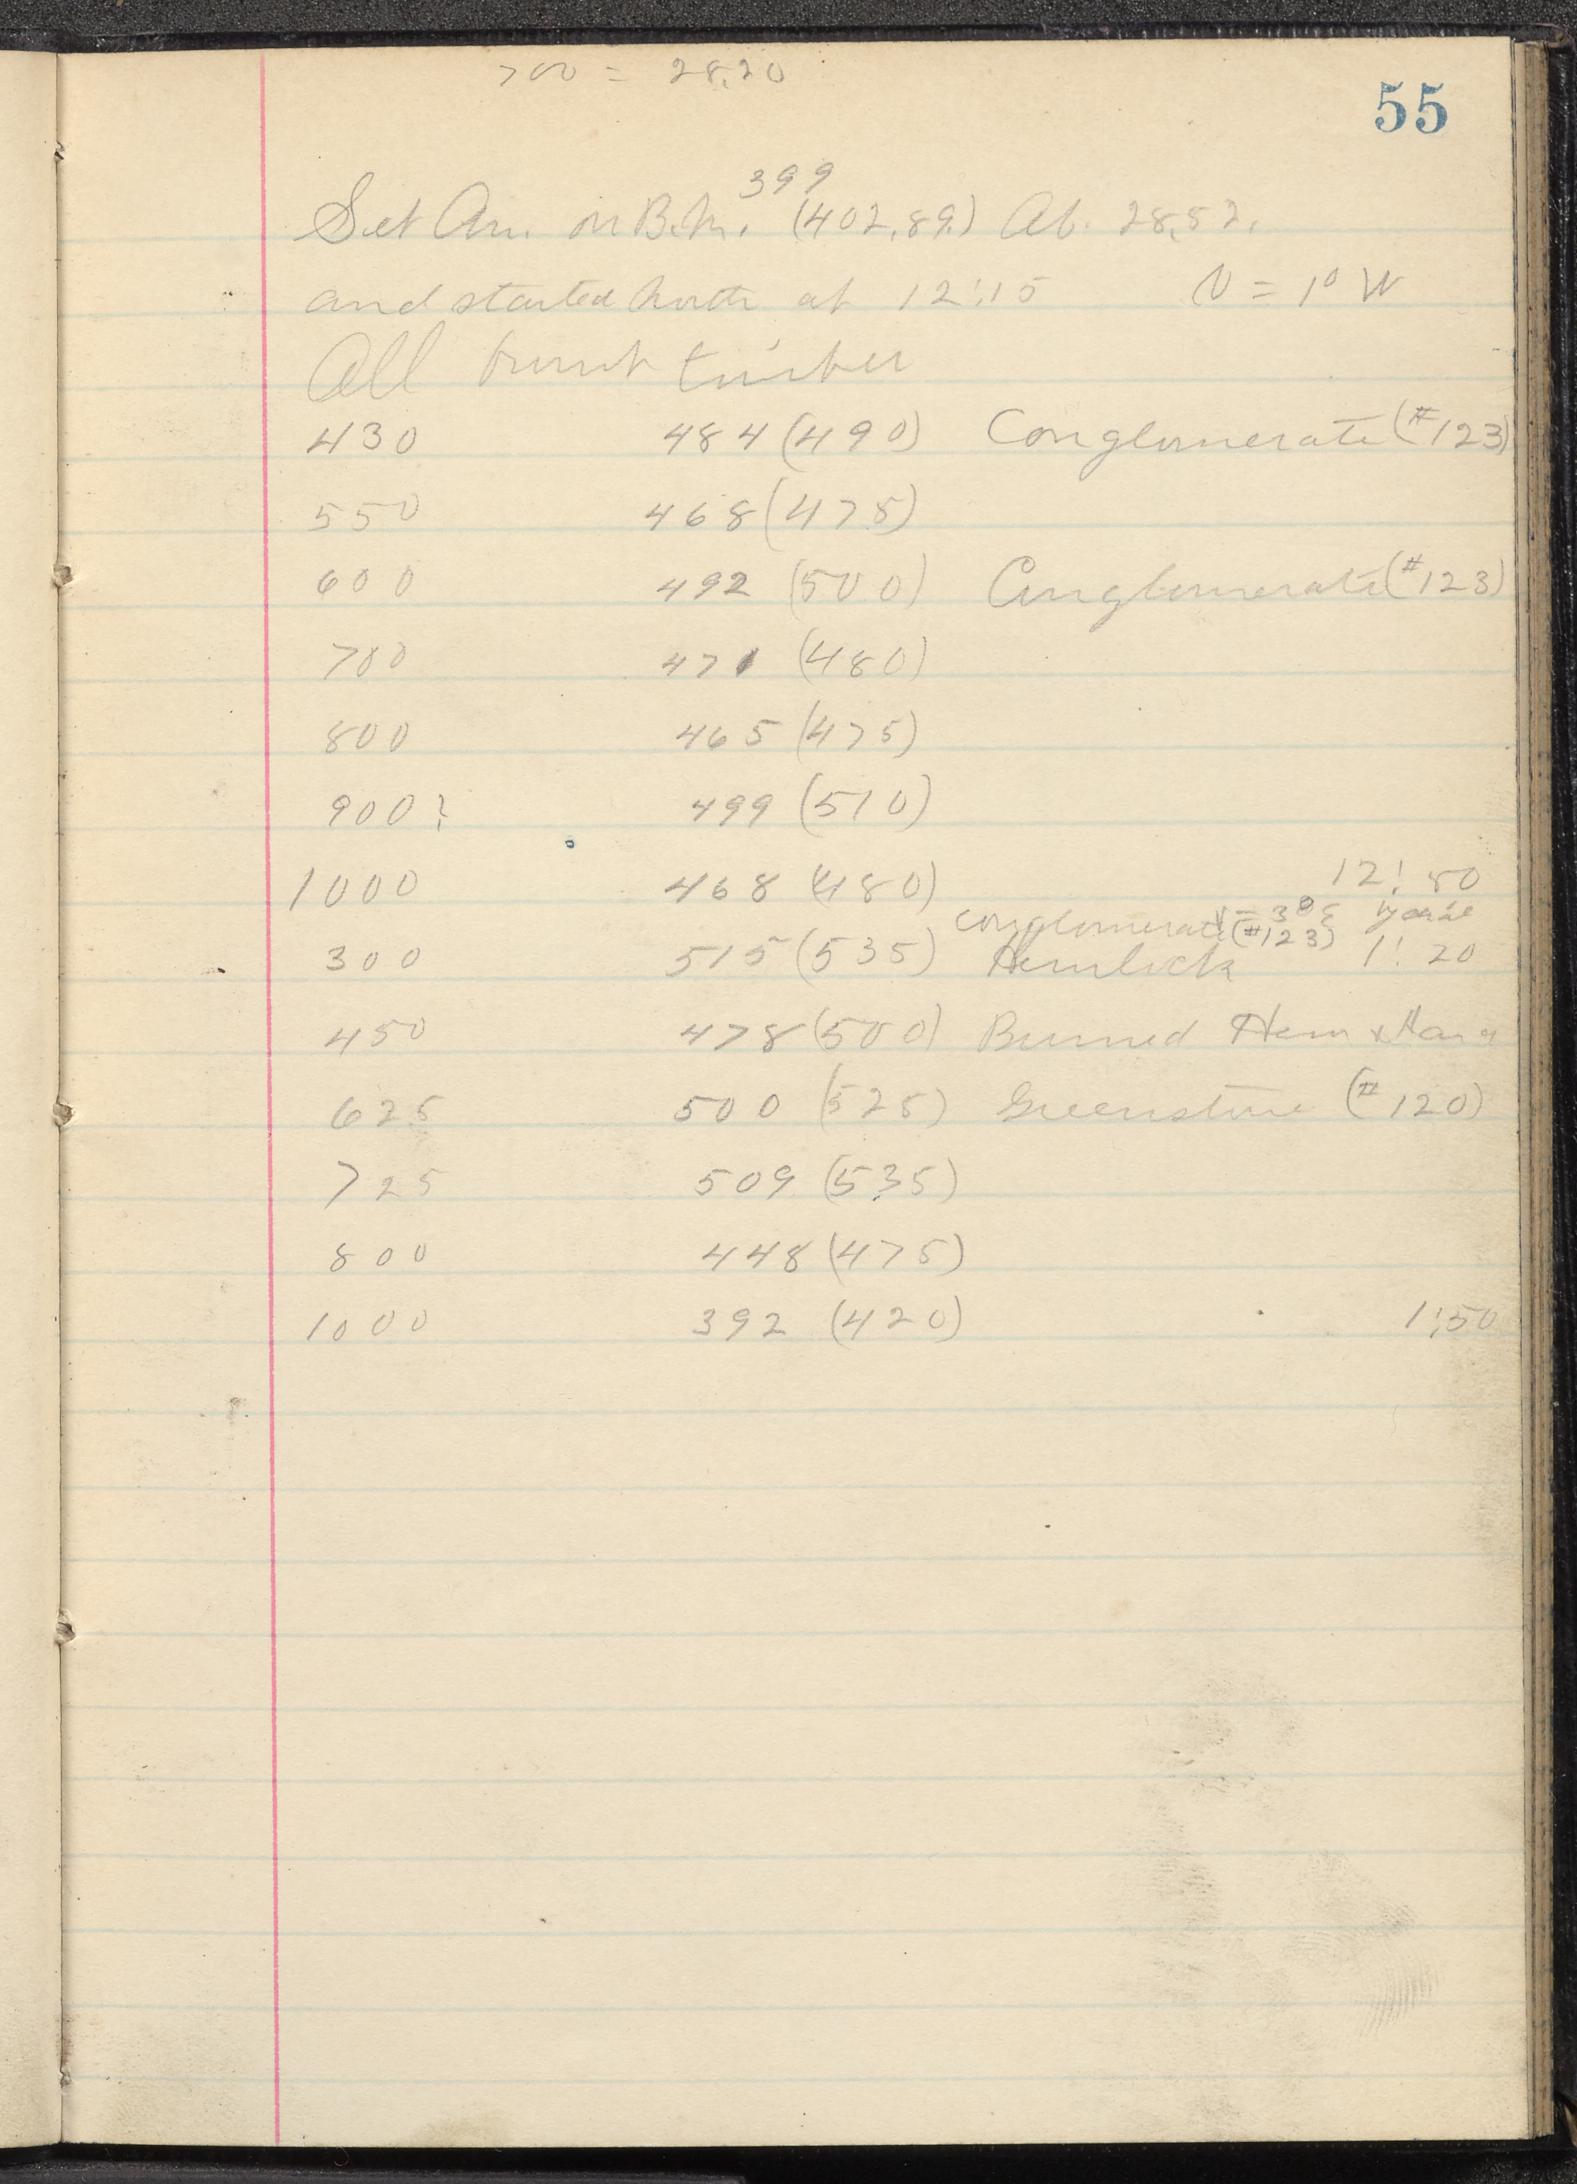 700 = 28.20
55
399
Set An. on B.M. (402.89) At. 28.52.
and started north at 12:15 V = 1° W
All burnt timber
430 484 (490) Conglomerate (#123)
550 468 (475)
600 492 (500) Conglomerate (#123)
700 471 (480)
800 465 (475)
900? 499 (510)
1000 468 (480) 12:50
Conglomerate (#123) V = 3° E
300 515 (535) Hemlock 1:20
450 478 (500) Burned Hem &
625 500 (525) Greenstone (#120)
725 509 (535)
800 448 (475)
1000 392 (420) 1:50